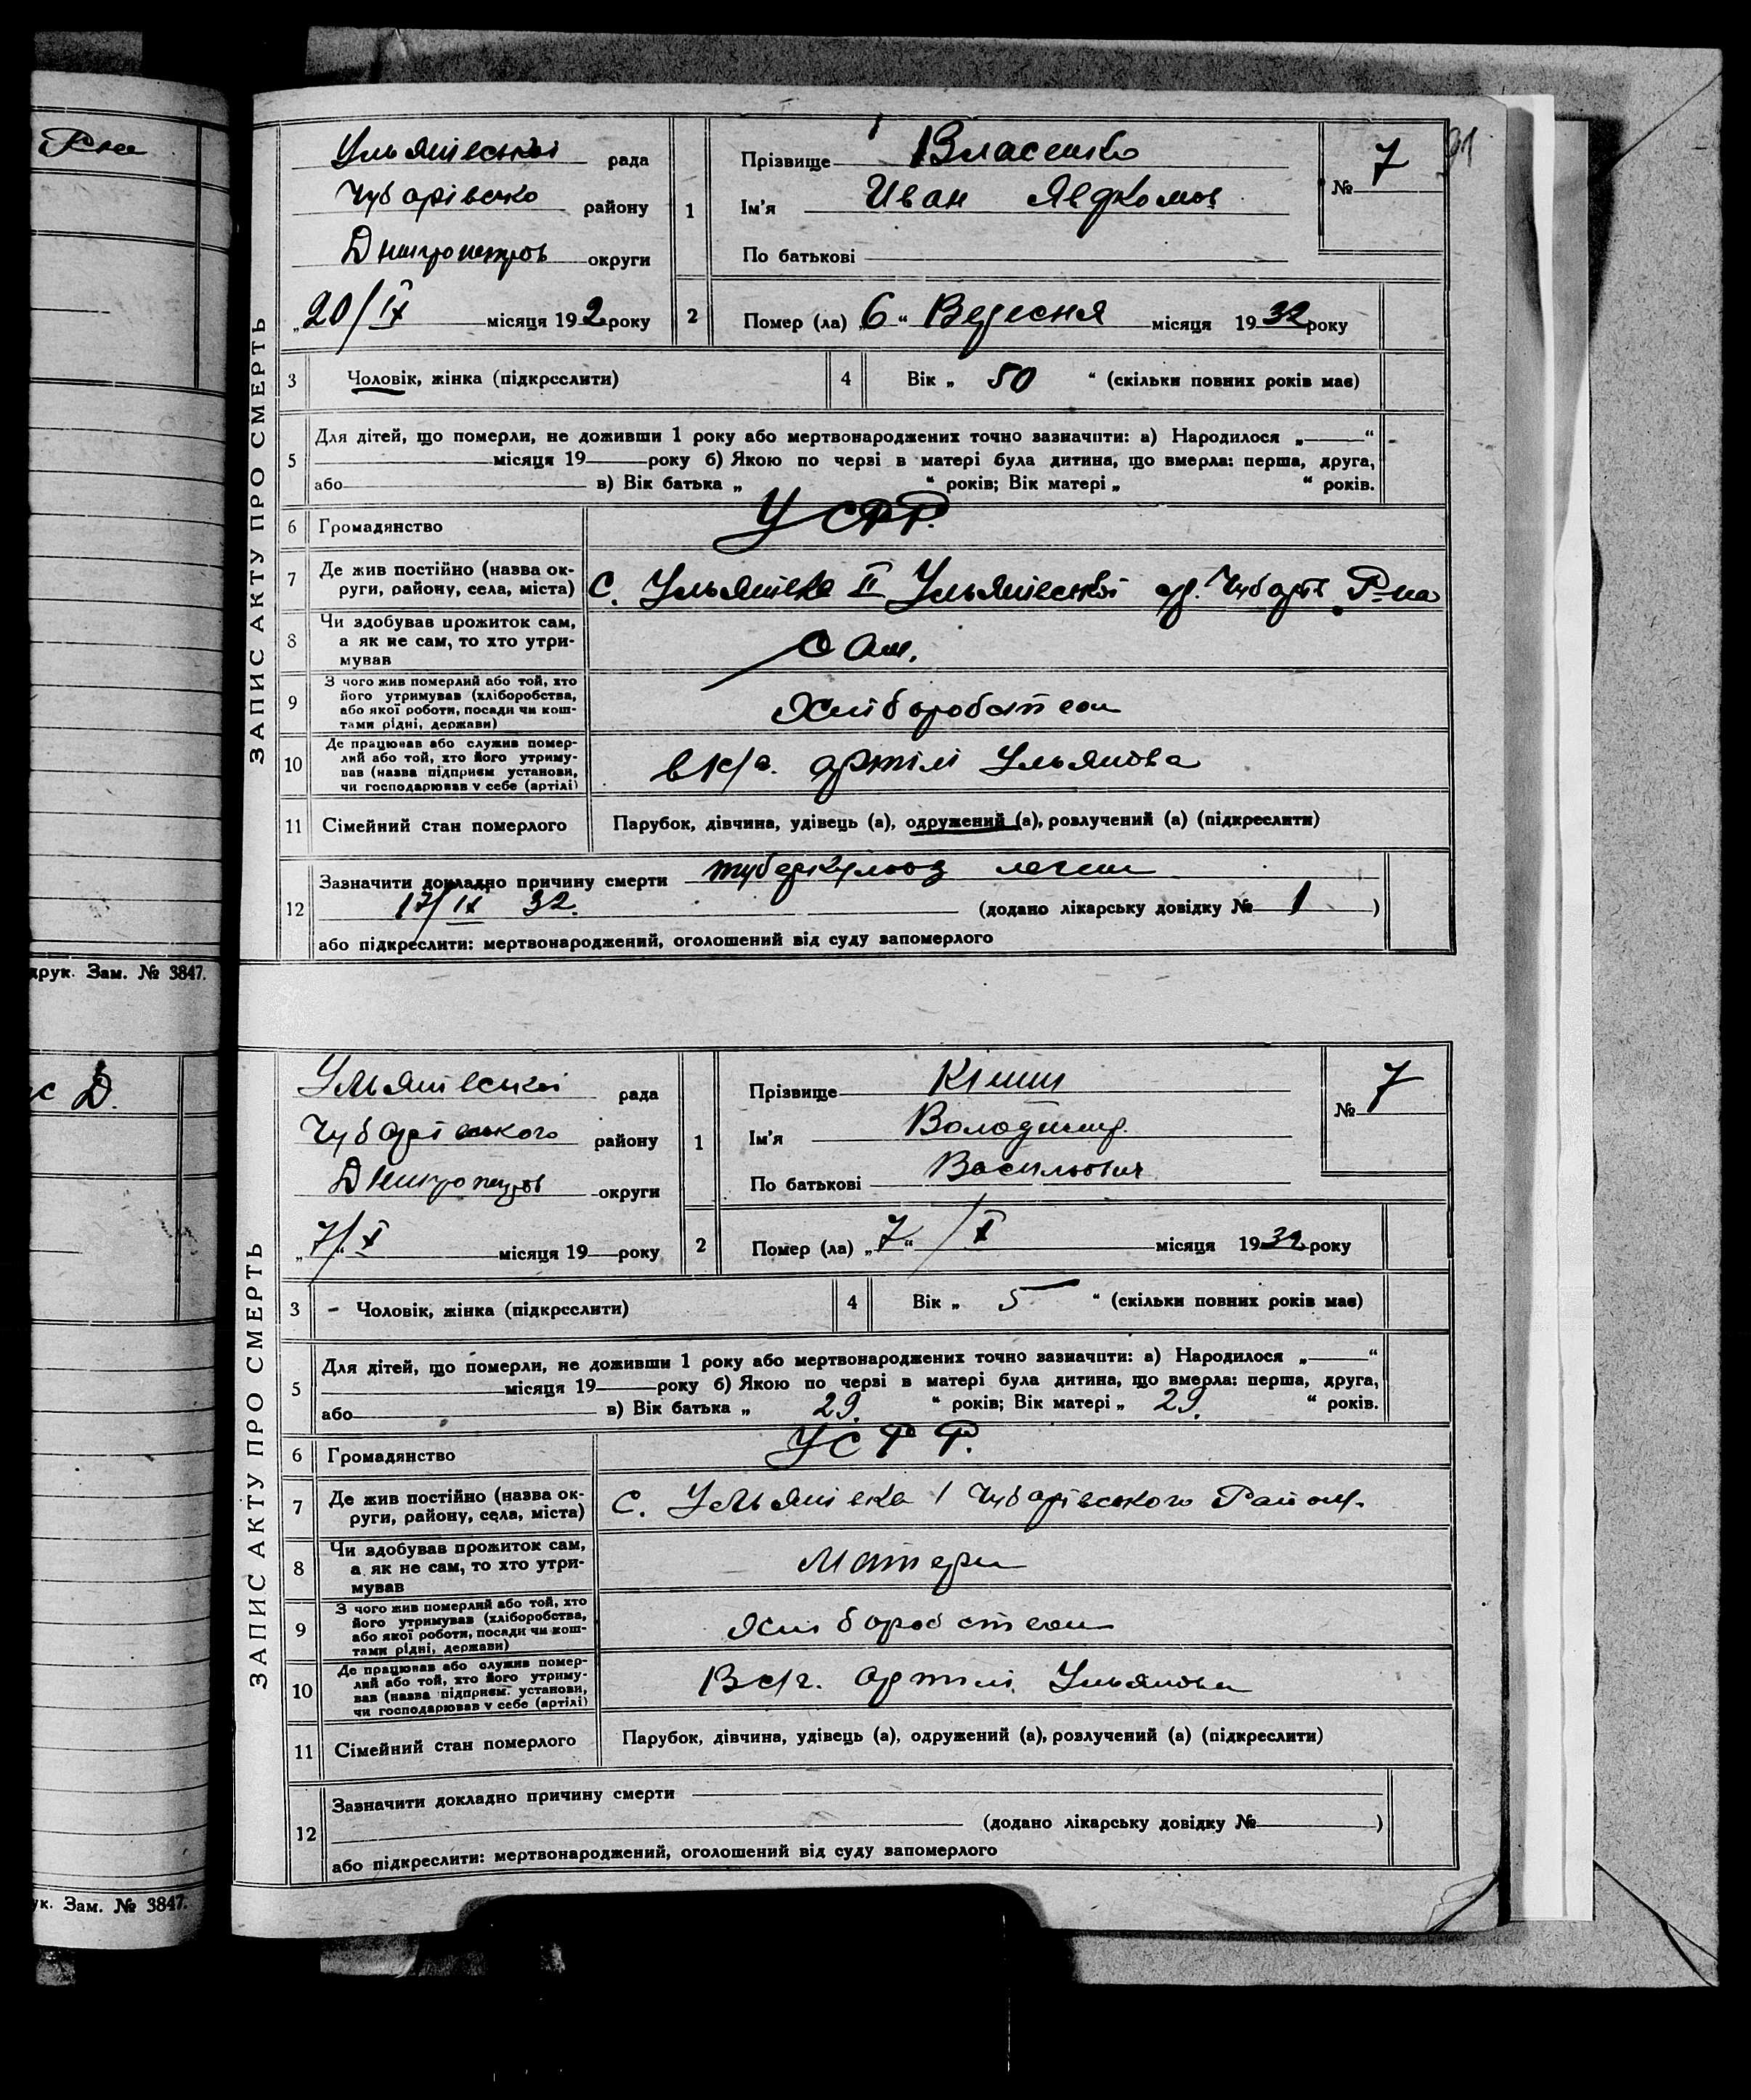 Рна
друк. Зам. № 3847.
с Д.
ук. Зам. № 3847.
91
ЗАПИС АКТУ ПРО СМЕРТЬ
Ульянівської рада
Чубарівсько району
Дніпропетров округи
„20/IX місяця 192 року
1 Прізвище Власенко
Ім'я Иван Явдкомов
По батькові
№ 7
2 Помер (ла) „6“ Вересня місяця 1932 року
3 Чоловік, жінка (підкреслити)
4 Вік „ 50 “ (скільки повних років має)
5 Для дітей, що померли, не доживши 1 року або мертвонароджених точно зазначити: а) Народилося „ “
місяця 19 року б) Якою по черзі в матері була дитина, що вмерла: перша, друга,
або в) Вік батька „ “ років; Вік матері „ “ років.
6 Громадянство УСРР.
7 Де жив постійно (назва ок-
руги, району, села, міста) С. Ульянівка II Ульянівської Чубарів. Р-на
8 Чи здобував прожиток сам,
а як не сам, то хто утри-
мував Сам.
9 З чого жив померлий або той, хто
його утримував (хліборобства,
або якої роботи, посади чи кош-
тами рідні, держави) Хліборобством
10 Де працював або служив помер-
лий або той, хто його утриму-
вав (назва підприєм установи,
чи господарював у себе (артілі) в с/г. артілі Ульянова
11 Сімейний стан померлого Парубок, дівчина, удівець (а), одружений (а), розлучений (а) (підкреслити)
12 Зазначити докладно причину смерти туберкульоз легень
17/IX 32. (додано лікарську довідку № 1 )
або підкреслити: мертвонароджений, оголошений від суду запомерлого
ЗАПИС АКТУ ПРО СМЕРТЬ
Ульянівської рада
Чубарівського району
Дніпропетров округи
„7/“ X місяця 19 року
1 Прізвище
Ім'я Володимир.
По батькові Васильович
№ 7
2 Помер (ла) „7“ / X місяця 1932 року
3 – Чоловік, жінка (підкреслити)
4 Вік „ 5 “ (скільки повних років має)
5 Для дітей, що померли, не доживши 1 року або мертвонароджених точно зазначити: а) Народилося „ “
місяця 19 року б) Якою по черзі в матері була дитина, що вмерла: перша, друга,
або в) Вік батька „ 29. “ років; Вік матері „ 29. “ років.
6 Громадянство УСРР.
7 Де жив постійно (назва ок-
руги, району, села, міста) С. Ульянівка 1 Чубарівського Району.
8 Чи здобував прожиток сам,
а як не сам, то хто утри-
мував Матери
9 З чого жив померлий або той, хто
його утримував (хліборобства,
або якої роботи, посади чи кош-
тами рідні, держави) Хліборобством
10 Де працював або служив помер-
лий або той, хто його утриму-
вав (назва підприєм. установи,
чи господарював у себе (артілі) В с/г. артілі Ульянова
11 Сімейний стан померлого Парубок, дівчина, удівець (а), одружений (а), розлучений (а) (підкреслити)
12 Зазначити докладно причину смерти
(додано лікарську довідку № )
або підкреслити: мертвонароджений, оголошений від суду запомерлого